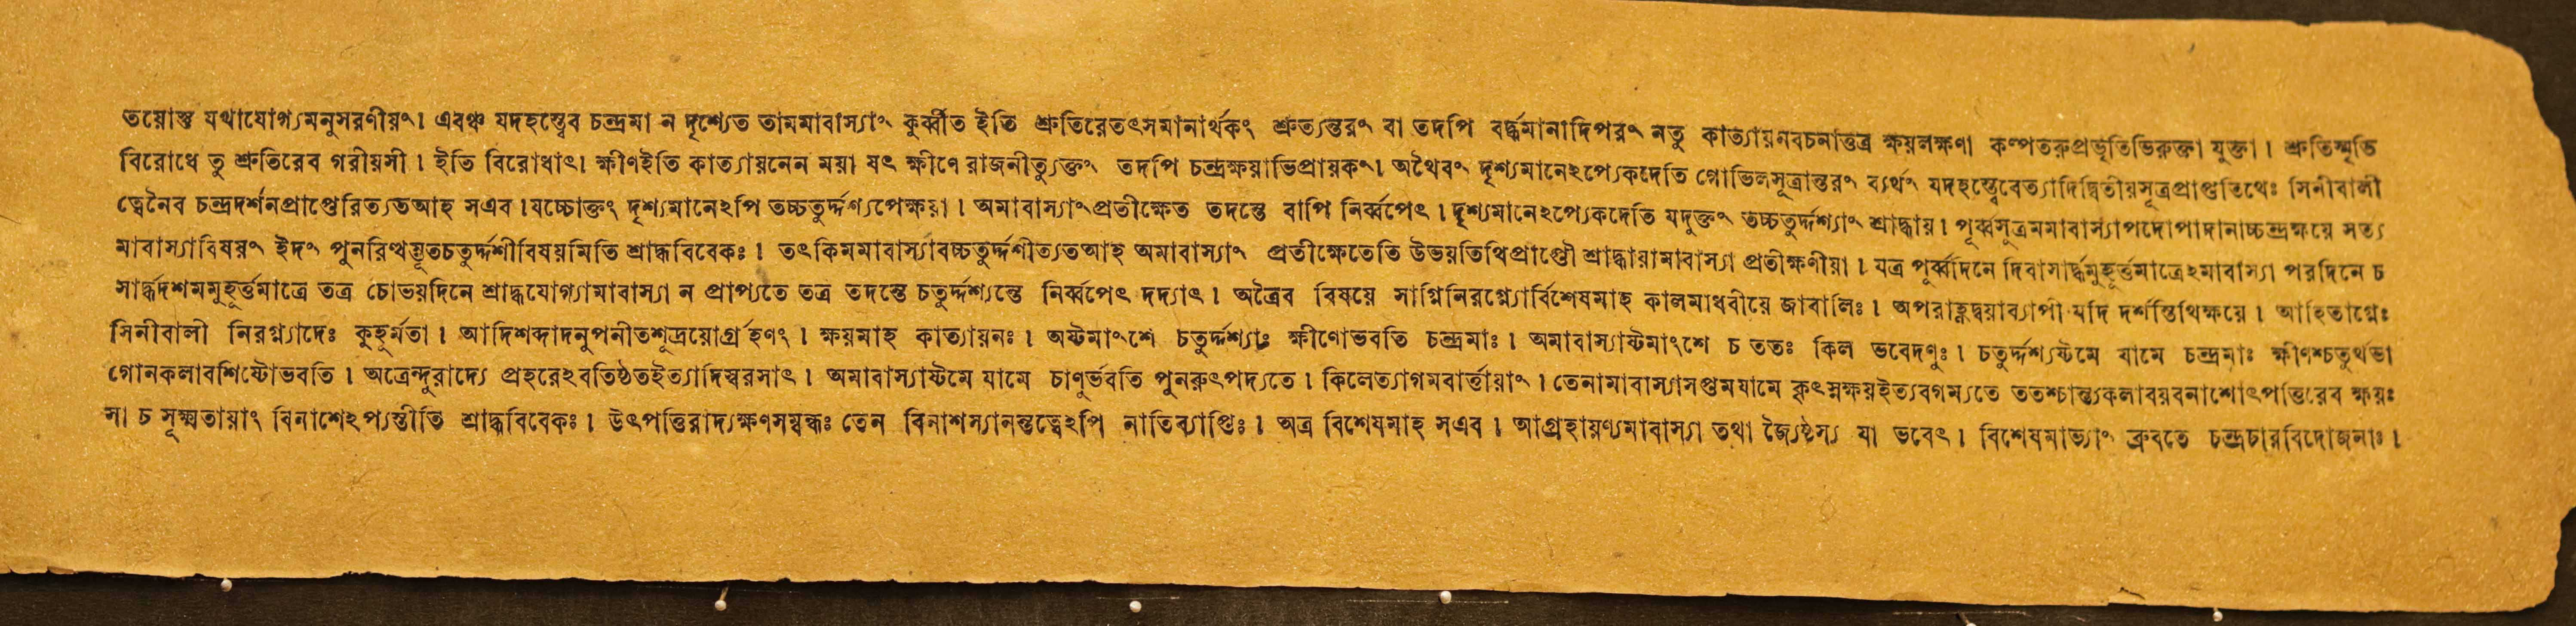 তয়োস্তু যথাযোগ্যমনুসরণীয়ং। এবঞ্চ যদহস্ত্বেব চন্দ্রমা ন দৃশ্যেত তামমাবাস্যাং কুর্ব্বীত ইতি শ্রুতিরেতৎসমানার্থকং শ্রুত্যন্তরং বা তদপি বর্দ্ধমানাদিপরং নতু কাত্যায়নবচনাত্তত্র ক্ষয়লক্ষণা কল্পতরুপ্রভৃতিভিরুক্তা যুক্তা। শ্রুতিস্মৃতি
বিরোধে তু শ্রুতিরেব গরীয়সী। ইতি বিরোধাৎ। ক্ষীণইতি কাত্যায়নেন ময়া যৎ ক্ষীণে রাজনীত্যুক্তং তদপি চন্দ্রক্ষয়াভিপ্রায়কং। অথৈবং দৃশ্যমানেঽপ্যেকদেতি গোভিলসূত্রান্তরং ব্যর্থং যদহস্ত্বেবেত্যাদিদ্বিতীয়সূত্রপ্রাপ্ততিথেঃ সিনীবালী
ত্বেনৈব চন্দ্রদর্শনপ্রাপ্তেরিত্যতআহ সএব।যচ্চোক্তং দৃশ্যমানেঽপি তচ্চতুর্দ্দশ্যপেক্ষয়া। অমাবাস্যাং প্রতীক্ষেত তদন্তে বাপি নির্ব্বপেৎ। দৃশ্যমানেঽপ্যেকদেতি যদুক্তং তচ্চতুর্দ্দশ্যাং শ্রাদ্ধায়। পূর্ব্বসূত্রমমাবাস্যাপদোপাদানাচ্চন্দ্রক্ষয়ে সত্য
মাবাস্যাবিষয়ং ইদং পুনরিত্থম্ভূতচতুর্দ্দশীবিষয়মিতি শ্রাদ্ধবিবেকঃ। তৎকিমমাবাস্যাবচ্চতুর্দ্দশীত্যতআহ অমাবাস্যাং প্রতীক্ষেতেতি উভয়তিথিপ্রাপ্তৌ শ্রাদ্ধায়ামাবাস্যা প্রতীক্ষণীয়া। যত্র পূর্ব্বদিনে দিবাসার্দ্ধমুহূর্ত্তমাত্রেঽমাবাস্যা পরদিনে চ
সার্দ্ধদশমমুহূর্ত্তমাত্রে তত্র চোভয়দিনে শ্রাদ্ধযোগ্যামাবাস্যা ন প্রাপ্যতে তত্র তদন্তে চতুর্দ্দশ্যন্তে নির্ব্বপেৎ দদ্যাৎ। অত্রৈব বিষয়ে সাগ্নিনিরগ্ন্যোর্বিশেষমাহ কালমাধবীয়ে জাবালিঃ। অপরাহ্ণদ্বয়াব্যাপী যদি দর্শস্তিথিক্ষয়ে। আহিতাগ্নেঃ
সিনীবালী নিরগ্ন্যাদেঃ কুহূর্মতা। আদিশব্দাদনুপনীতশূদ্রয়োর্গ্রহণং। ক্ষয়মাহ কাত্যায়নঃ। অষ্টমাংশে চতুর্দ্দশ্যাঃ ক্ষীণোভবতি চন্দ্রমাঃ। অমাবাস্যাষ্টমাংশে চ ততঃ কিল ভবেদণুঃ। চতুর্দ্দশ্যষ্টমে যামে চন্দ্রমাঃ ক্ষীণশ্চতুর্থভা
গোনকলাবশিষ্টোভবতি। অত্রেন্দুরাদ্যে প্রহরেঽবতিষ্ঠতইত্যাদিস্বরসাৎ। অমাবাস্যাষ্টমে যামে চাণুর্ভবতি পুনরুৎপদ্যতে। কিলেত্যাগমবার্ত্তায়াং। তেনামাবাস্যাসপ্তমযামে কৃৎস্নক্ষয়ইত্যবগম্যতে ততশ্চান্ত্যকলাবয়বনাশোৎপত্তিরেব ক্ষয়ঃ
সা চ সূক্ষ্মতায়াং বিনাশেঽপ্যস্তীতি শ্রাদ্ধবিবেকঃ। উৎপত্তিরাদ্যক্ষণসম্বন্ধঃ তেন বিনাশস্যানন্তত্বেঽপি নাতিব্যাপ্তিঃ। অত্র বিশেষমাহ সএব। আগ্রহায়ণ্যমাবাস্যা তথা জ্যৈষ্ঠস্য যা ভবেৎ। বিশেষমাভ্যাং ব্রুবতে চন্দ্রচারবিদোজনাঃ।